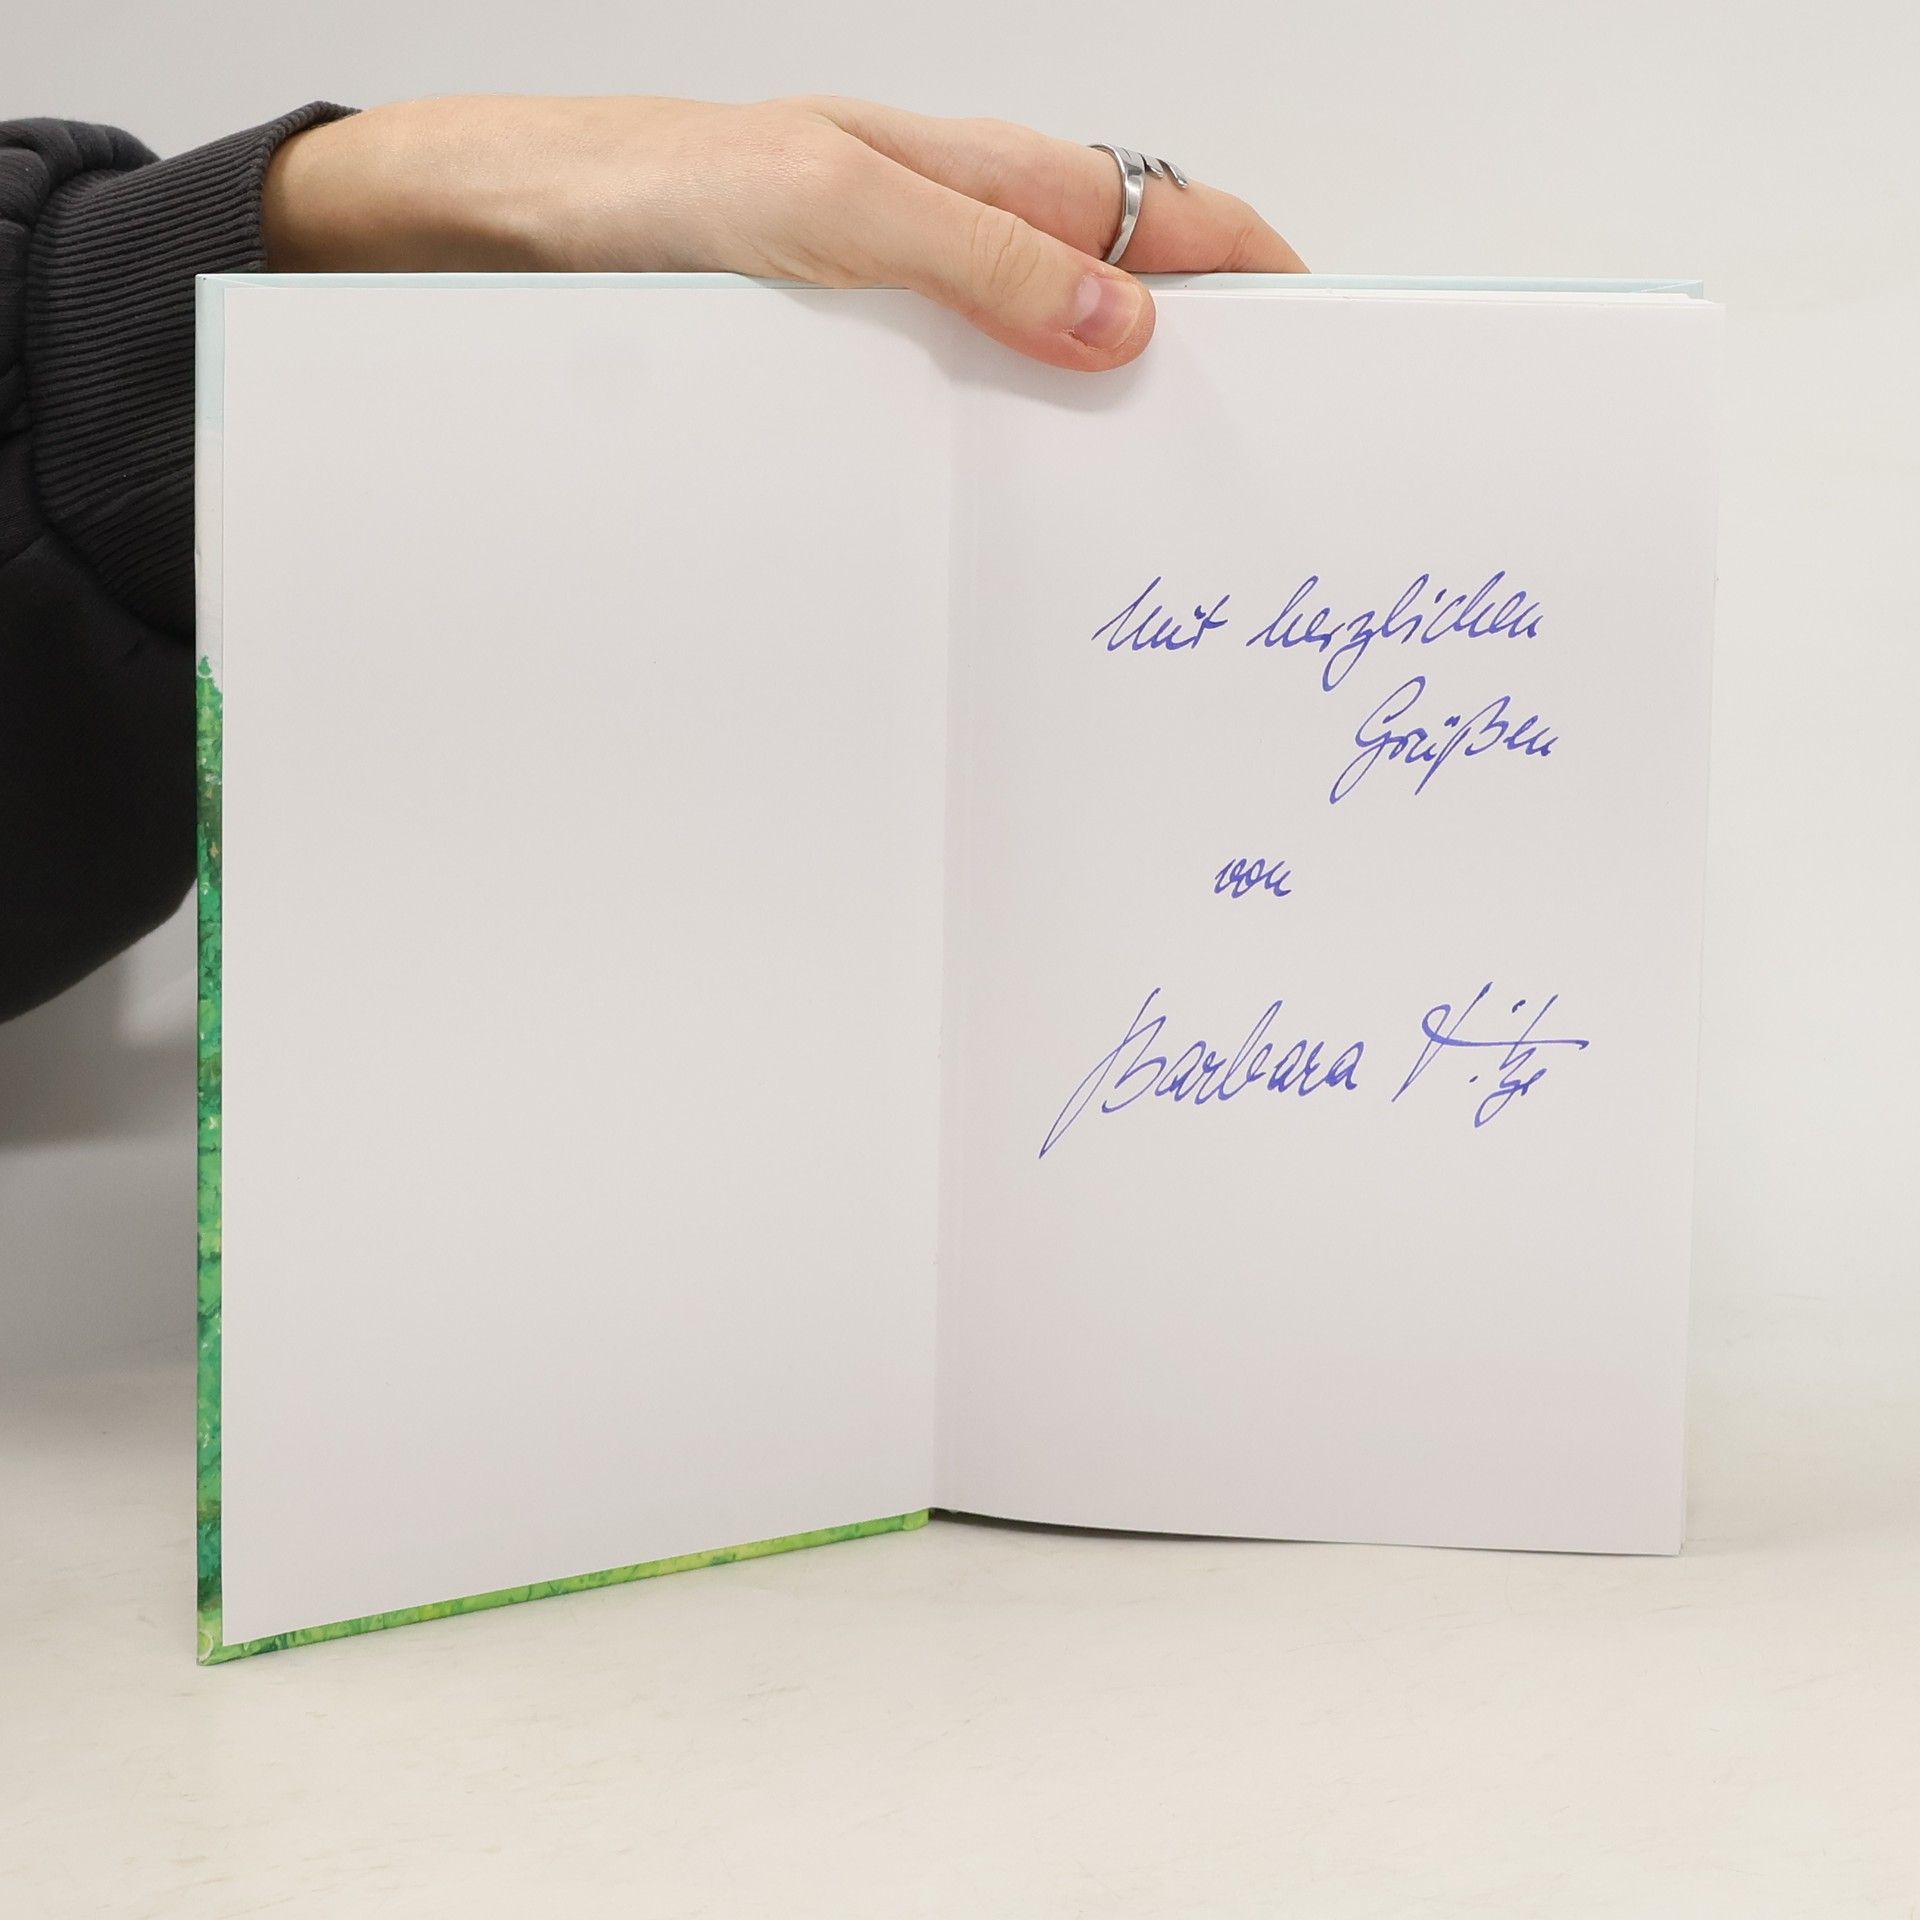 Mit herzlichen
Grüßen
von
Barbara